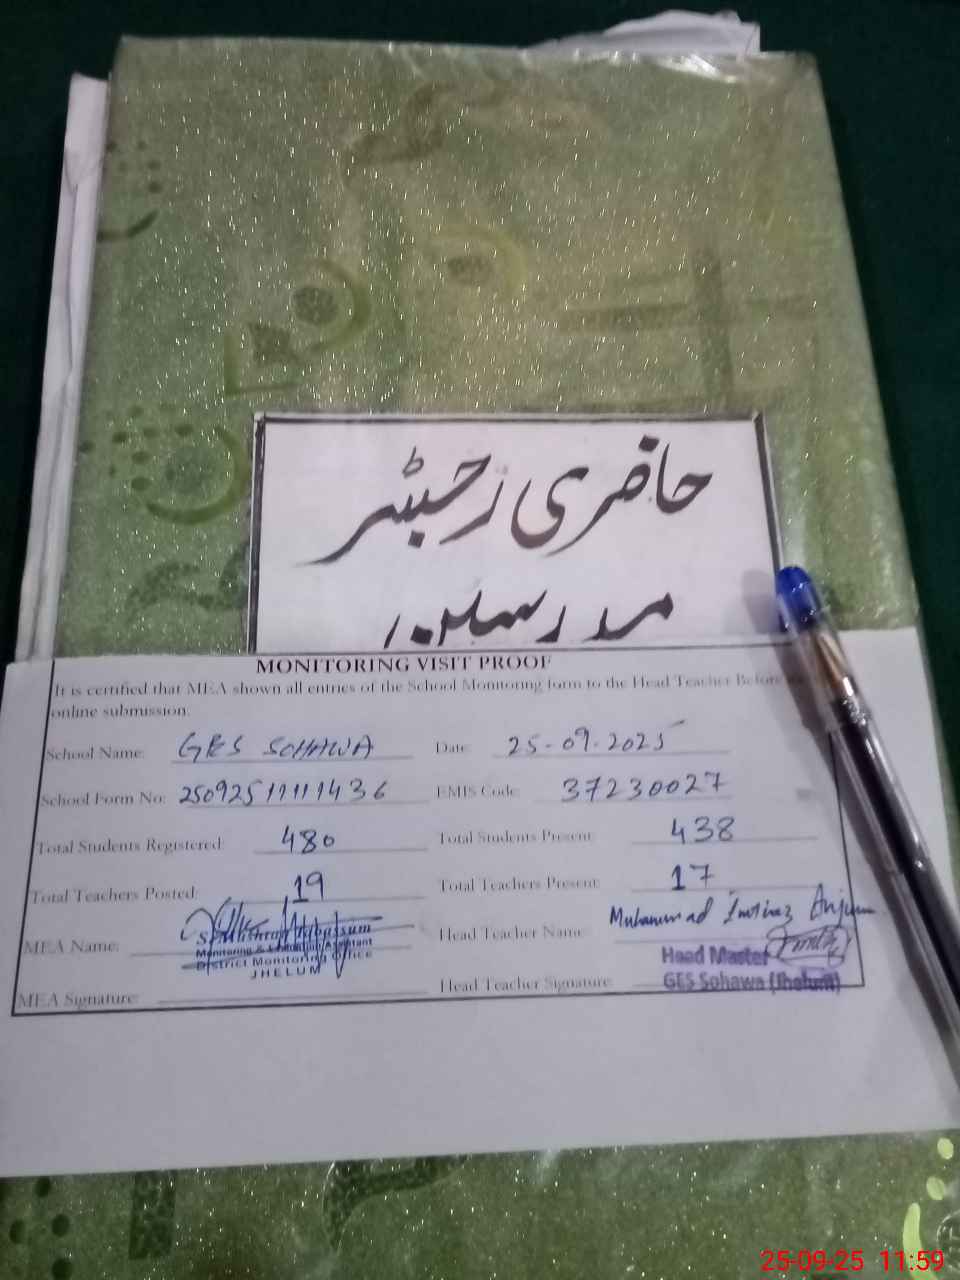 حاضری رجسٹر
مدرسین
MONITORING VISIT PROOF
It is certified that MEA shown all entries of the School Monitoring form to the Head Teacher Before
online submission.
School Name: GES SOHAWA Date: 25-09-2025
School Form No: 25092511111436 EMIS Code: 37230027
Total Students Registered: 480 Total Students Present: 438
Total Teachers Posted: 19 Total Teachers Present: 17
MEA Name: Head Teacher Name: Muhammad Imtiaz Anjum
Monitoring & Evaluation Assistant
District Monitoring Office
JHELUM
Head Master
GES Sohawa (Jhelum)
MEA Signature: Head Teacher Signature:
25-09-25 11:59